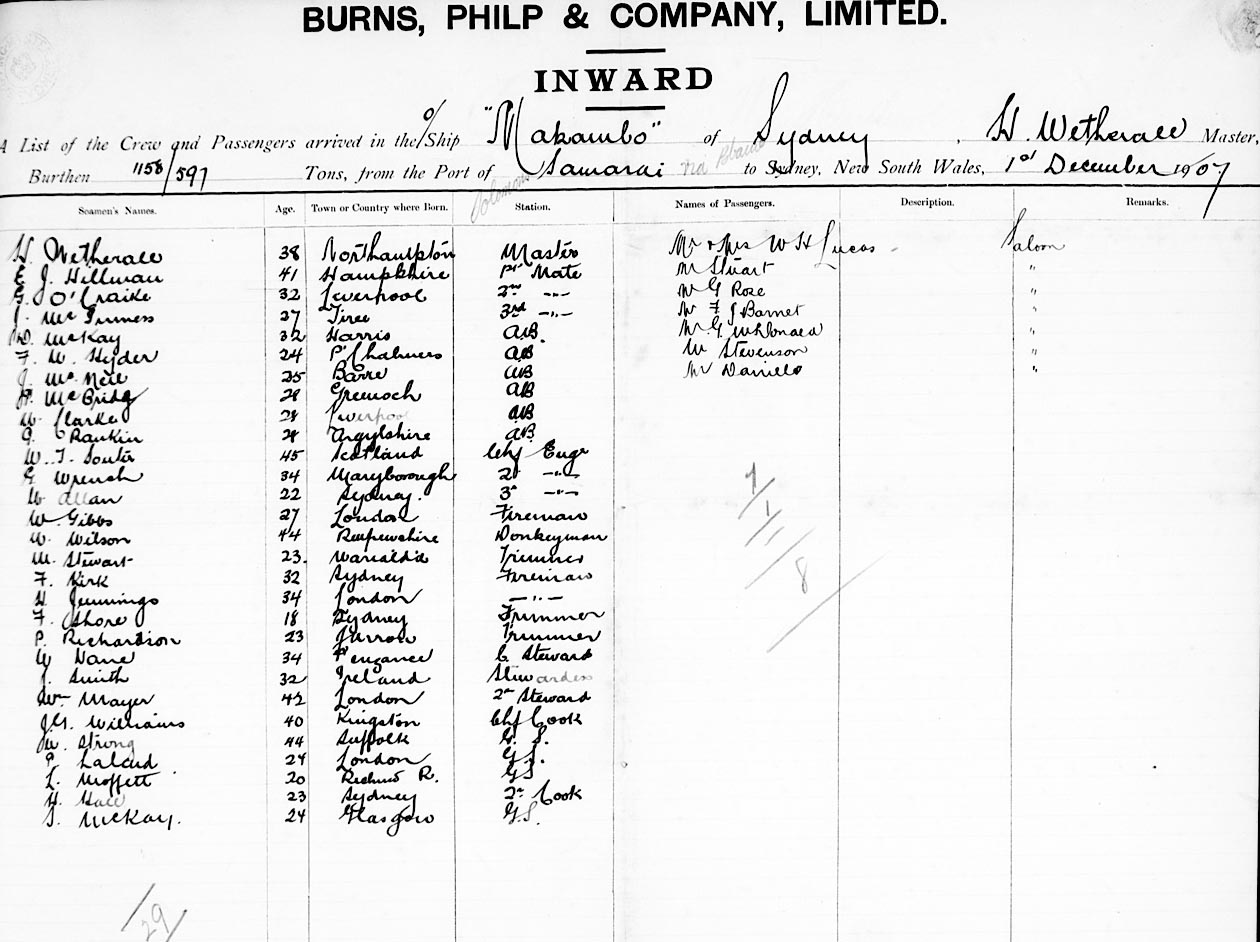 BURNS, PHILP & COMPANY, LIMITED.
INWARD
A List of the Crew and Passengers arrived in the S/Ship "Makambo" of Sydney, H. Wetherall Master,
Burthen 1158/597 Tons, from the Port of Samarai via Solomon Islands to Sydney, New South Wales, 1st December 1907
Seamen's Names. Age. Town or Country where Born. Station. Names of Passengers. Description. Remarks.
H. Wetherall 38 Northampton Master Mr & Mrs W H Lucas - Saloon
E J. Hillman 41 Hampshire 1st Mate Mr Stuart "
G. O'Craike 32 Liverpool 2nd -"- Mr G Rose "
J. McInness 27 Tiree 3rd -"- Mr F J Barnet "
D. McKay 32 Harris AB. Mr G McDonald "
F. W. Hyder 24 Pt Chalmers AB Mr Stevenson "
J. McNeil 25 Barre AB Mr Daniels "
McBride 28 Greenock AB
W. Clarke 28 Liverpool AB
Rankin 28 Argylshire AB.
W. T. Souter 45 Scotland Chf Engr
G Wrench 34 Maryborough 2d -"-
W Allan 22 Sydney. 3d -"-
W Gibbs 27 London Fireman
W. Wilson 44 Renfrewshire Donkeyman
M. Stewart 23. Warialda Trimmer
F. Kirk 32 Sydney Fireman
H Jennings 34 London -"-
F. Shore 18 Sydney Trimmer
P. Richardson 23 Jarrow Trimmer
W Hane 34 Penzance C. Steward
J. Smith 32 Ireland Stewardess
Wm Mayer 42 London 2nd Steward
J.G. Williams 40 Kingston Chf Cook
W. Strong 44 Suffolk G. S.
24 London G.S.
L. Moffett 20 Richmd R. GS
H. Hall 23 Sydney 2nd Cook
McKay. 24 Glasgow G.S.
7
1
8
29